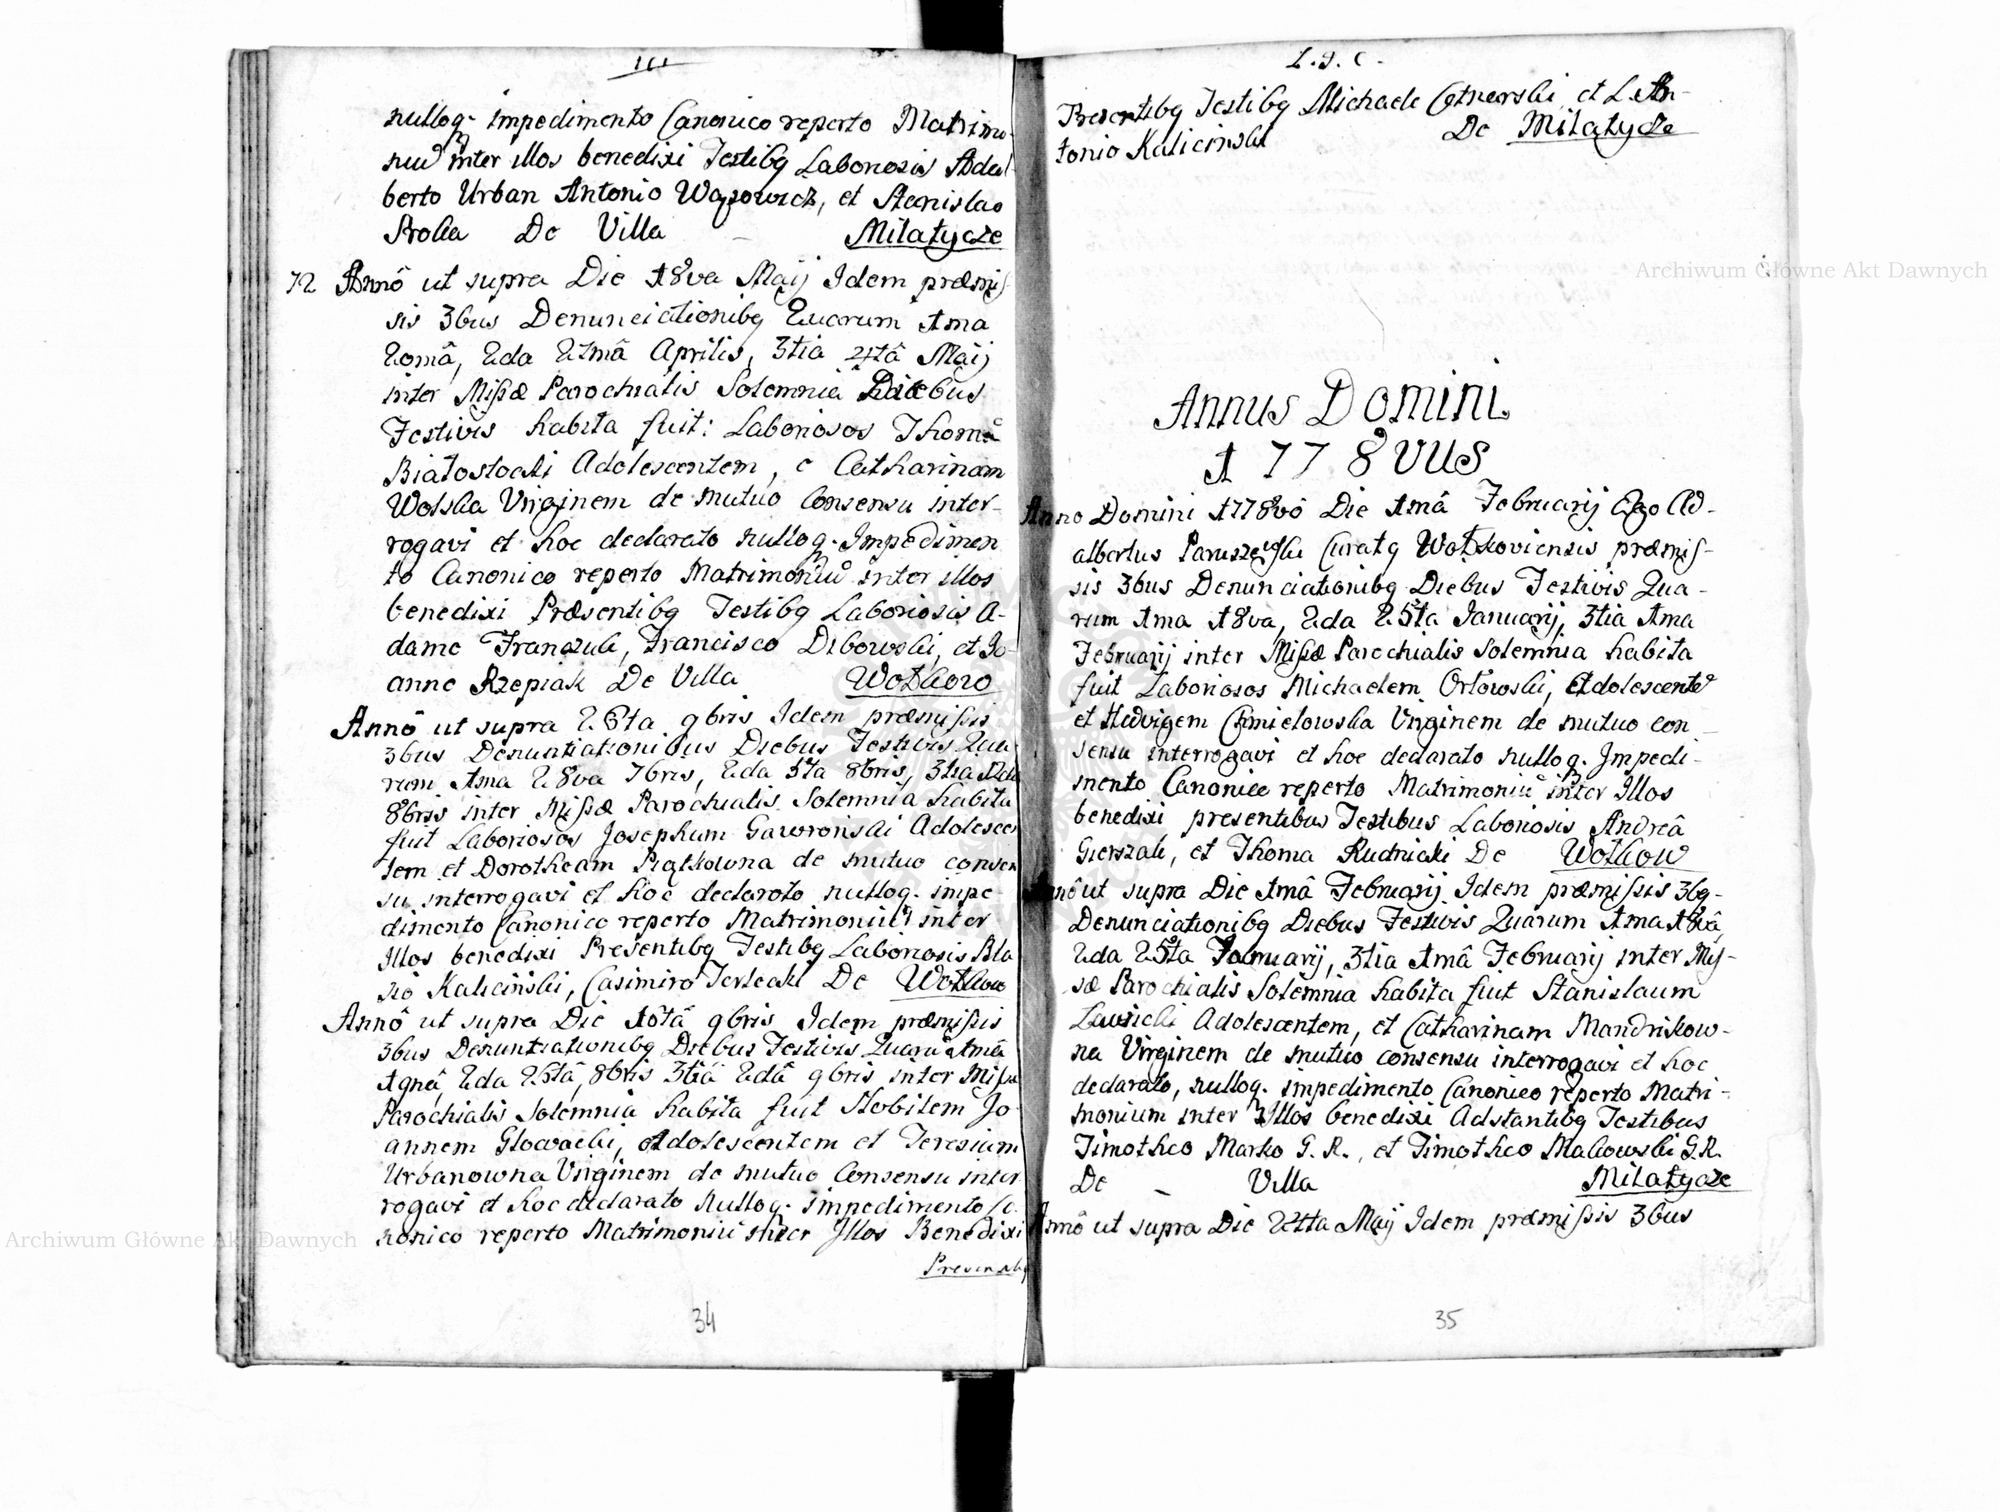 nulloq. impedimento Canonico reperto Matrimo-
niũ inter illos benedixi Testibq Laboriosis Adal-
berto Urban Antonio Wąsowicz, et Stanislao
De Villa Miłatycze
12 Annô ut supra Die 18va Maij Idem præmis-
sis 3bus Denunciationibq Quarum 1ma
2omâ, 2da 21mâ Aprilis, 3tia 4tâ Maij
inter Missæ Parochialis Solemnia Diebus
Festivis habita fuit: Laboriosos Thomã
Białostocki Adolescentem, e Catharinam
Wolska Virginem de mutuo consensu inter-
rogavi et hoc declarato nulloq. Impedimen
to Canonico reperto Matrimoniũ inter illos
benedixi Præsentibq Testibq Laboriosis A-
damo Franczuk, Francisco Dibowski, et Jo-
anne Rzepiak De Villa Wołkow
Annô ut supra 26ta 9bris Idem præmissis
3bus Denuntiationibus Diebus Festivis Qua
rum 1ma 28va 7bris, 2da 5ta 8bris, 3tia 12da
8bris inter Missæ Parochialis Solemnia habita
fuit Laboriosos Josephum Gawroński Adolescen
tem et Dorotheam Piątkowna de mutuo consen
su interrogavi et hoc declarato nulloq. impe-
dimento Canonico reperto Matrimoniũ inter
Illos benedixi Presentibq Testibq Laboriosis Bla
sio Kaliciński, Casimiro Terlecki De Wołkow
Annô ut supra Die 10tâ 9bris Idem præmissis
3bus Denuntiationibq Diebus Festivis Quarũ 1mâ
19nâ, 2da 26tâ, 8bris 3tiâ 2dâ 9bris inter Missæ
Parochialis Solemnia habita fuit Nobilem Jo-
annem Głowacki, Adolescentem et Teresiam
Urbanowna Virginem de mutuo Consensu inter
rogavi et hoc declarato Nulloq. impedimento Ca-
nonico reperto Matrimoniũ inter Illos Benedixi
Presentibq
34
L. J. C.
Presentibq Testibq Michaele Cetnerski et L. An-
tonio Kaliciński De Miłatycze
Annus Domini
1778VUS
Anno Domini 1778vô Die 1mâ Februarij Ego Ad-
albertus Paruszewski Curatq Wołkoviensis præmis-
sis 3bus Denunciationibq Diebus Festivis Qua-
rum 1ma 18va, 2da 25ta Januarij, 3tia 1ma
Februarij inter Missæ Parochialis Solemnia habita
fuit Laboriosos Michaelem Orłowski, Adolescentẽ
et Hedvigem Chmielowska Virginem de mutuo con-
sensu interrogavi et hoc declarato nulloq. Impedi-
mento Canonice reperto Matrimoniũ inter Illos
benedixi presentibus Testibus Laboriosis Andreâ
Gierszak, et Thoma Rudnicki De Wołkow
Annô ut supra Die 1mâ Februarij Idem præmissis 3bq-
Denunciationibq Diebus Festivis Quarum 1ma 18vâ,
2da 25ta Januarij, 3tia 1mâ Februarij inter Mis-
sæ Parochialis Solemnia habita fuit Stanislaum
Ławicki Adolescentem, et Catharinam Mandrikow-
na Virginem de mutuo consensu interrogavi et hoc
declarato, nulloq. impedimento Canonico reperto Matri-
monium inter Illos benedixi Adstantibq Testibus
Timotheo Marko G. R., et Timotheo Makowski G. R.
De Villa Miłatycze
Annô ut supra Die 24ta Maij Idem præmissis 3bus
35
Archiwum Główne Akt Dawnych
Archiwum Główne Akt Dawnych